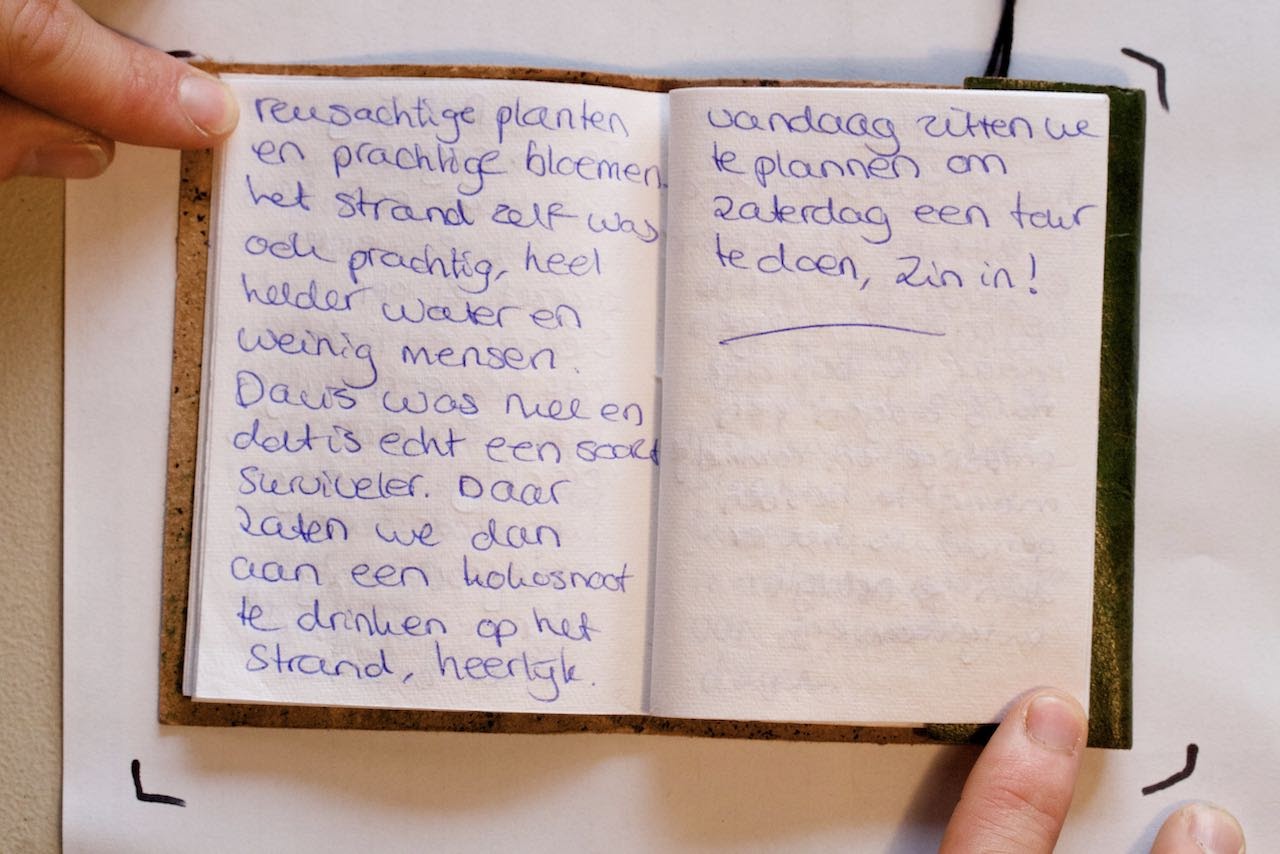 reusachtige planten
en prachtige bloemen.
het strand zelf was
ook prachtig, heel
helder water en
weinig mensen.
Davis was mee en
dat is echt een soort
surviveler. Daar
zaten we dan
aan een kokosnoot
te drinken op het
strand, heerlijk.
vandaag zitten we
te plannen om
zaterdag een tour
te doen, zin in!